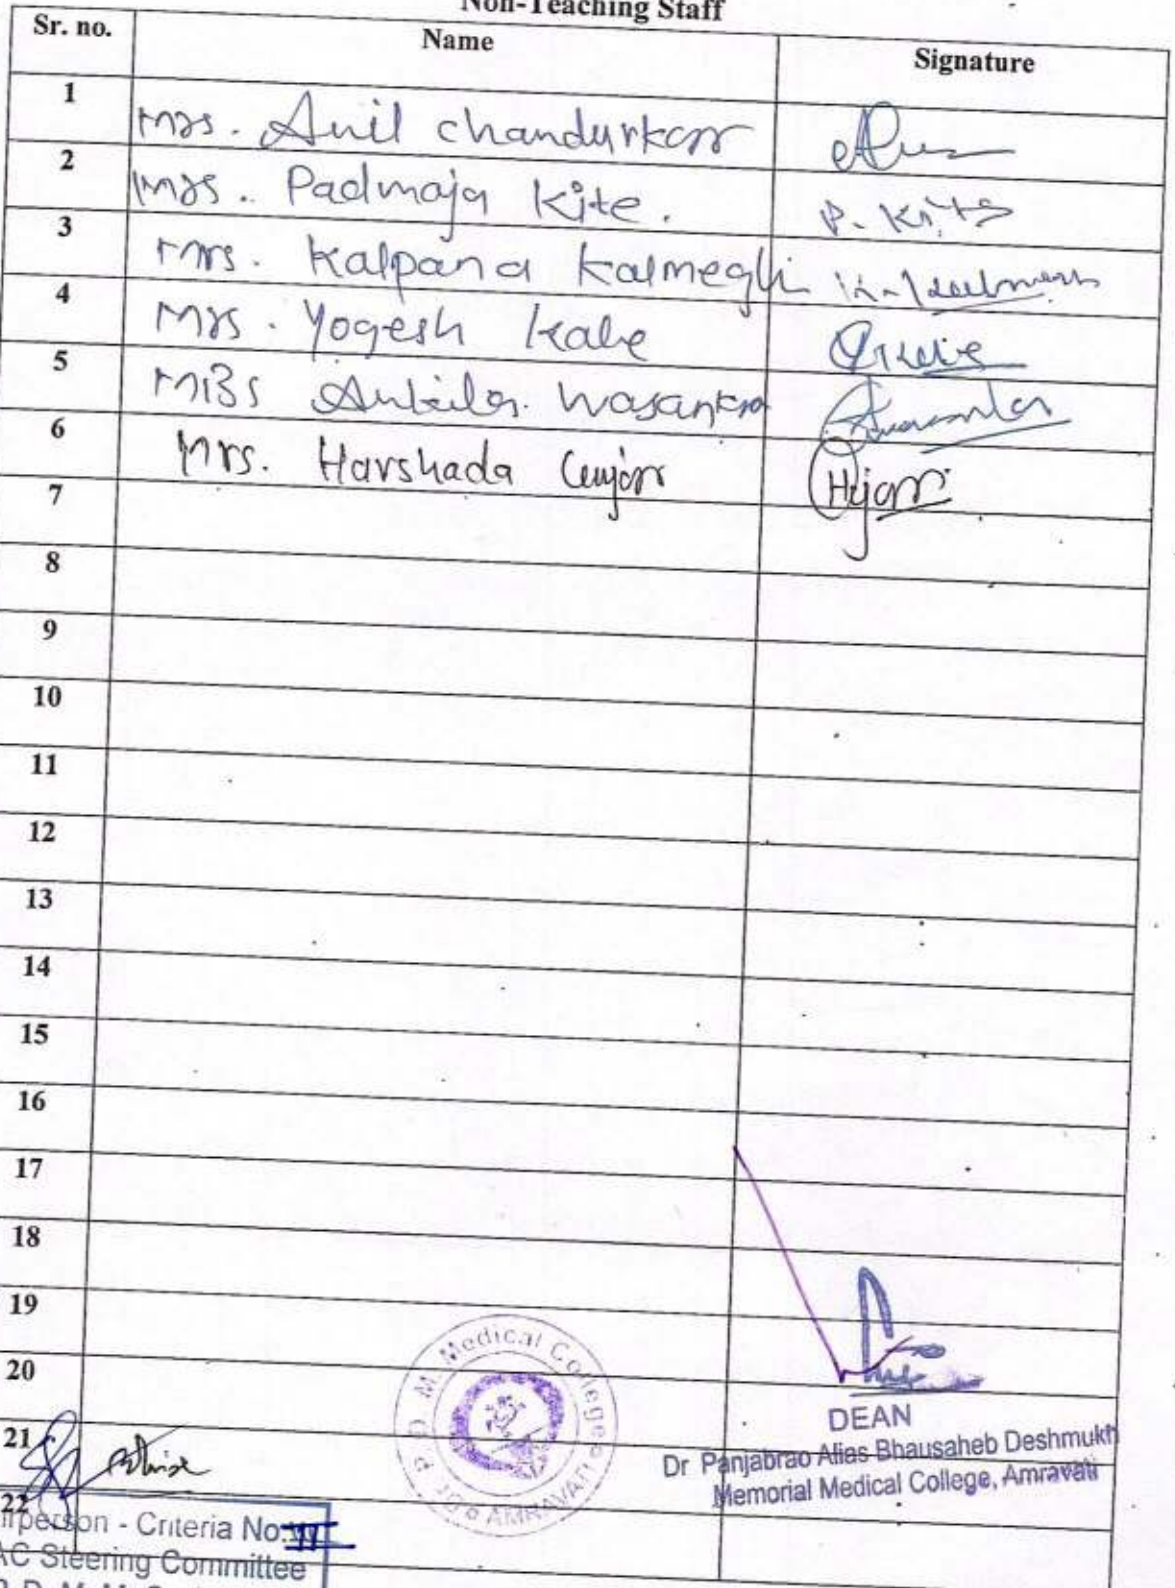 Non-Teaching Staff
Sr. no. Name Signature
1 Mrs. Anil Chandurkar
2 Mrs. Padmaja Kite. P. Kite
3 Mrs. Kalpana Kalmegh
4 Mrs. Yogesh Kale
5 Miss Wasankar
6 Mrs. Harshada
7
8
9
10
11
12
13
14
15
16
17
18
19
20
21
22
P. D. M. Medical College
AMRAVATI
DEAN
Dr Panjabrao Alias Bhausaheb Deshmukh
Memorial Medical College, Amravati
- Criteria No.
Steering Committee